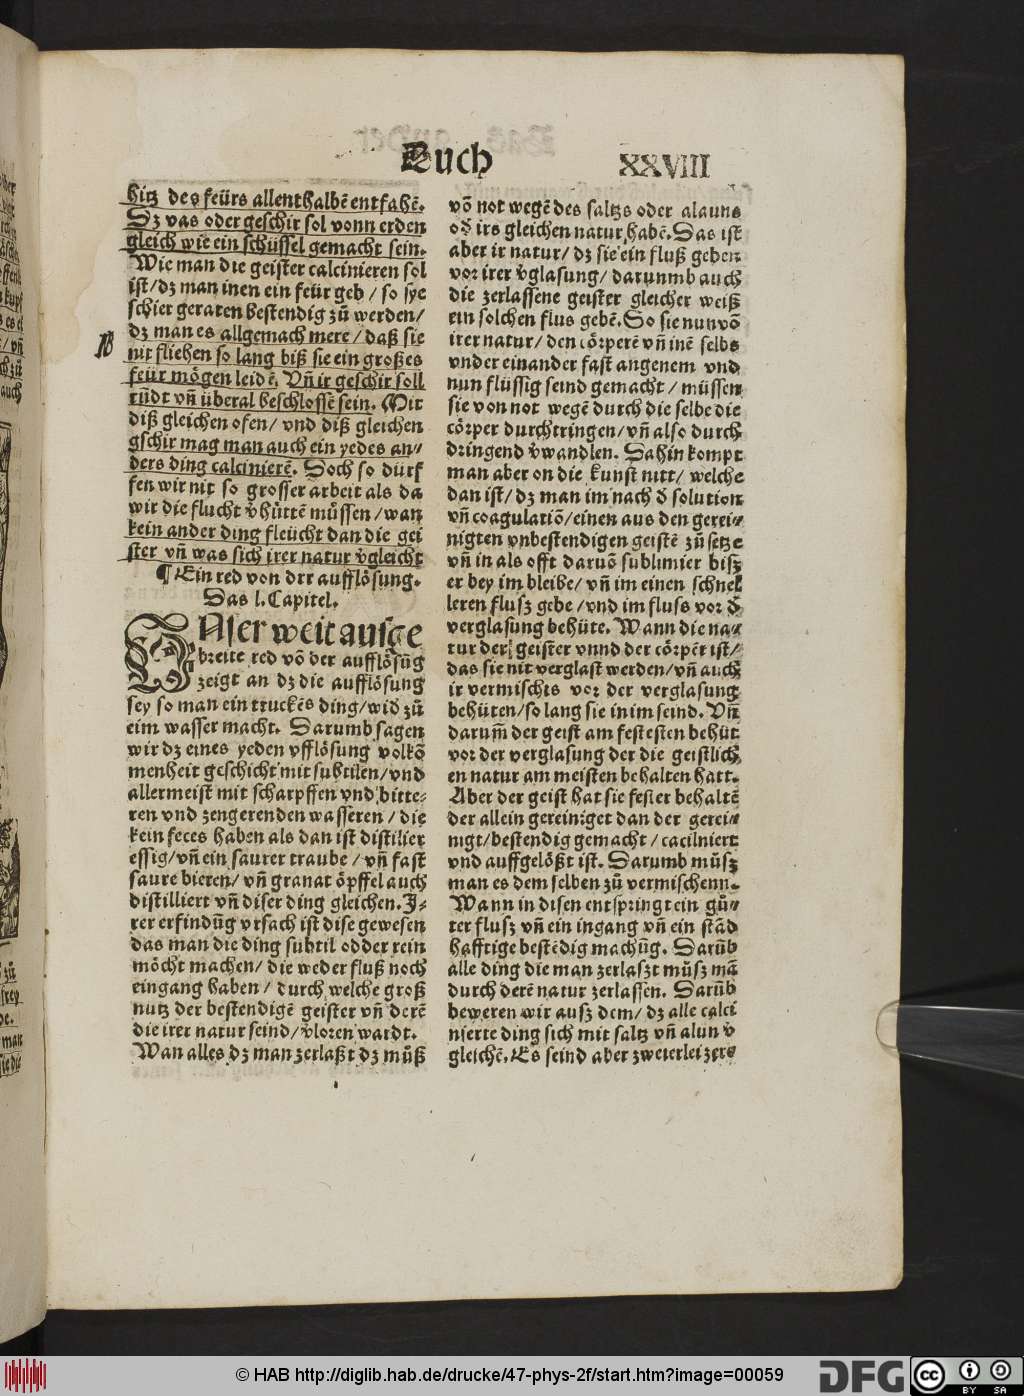 Buch XXVIII
hitz des feürs allenthalbē entfahē.
Dz vas oder geschir sol vonn erden
gleich wie ein schüssel gemacht sein.
Wie man die geister calcinieren sol
ist/dz man inen ein feür geb / so sye
schier geraten bestendig zů werden/
dz man es allgemach mere / daß sie
nit fliehen so lang biß sie ein großes
feür mögen leidē. Vñ ir geschir soll
rūdt vñ überal beschlossē sein. Mit
diß gleichen ofen/ vnd diß gleichen
gschir mag man auch ein yedes an/
ders ding calcinierē. Doch so dürf
fen wir nit so grosser arbeit als da
wir die flucht v̄hüttē müssen /wan
kein ander ding fleücht dan die gei
ster vñ was sich irer natur v̄gleicht
¶ Ein red von der aufflösung.
Das l. Capitel.
Vnser weit ausge
breite red vō der aufflösūg
zeigt an dz die aufflösung
sey so man ein truckēs ding/wid zů
eim wasser macht. Darumb sagen
wir dz eines yeden vfflösung volkō
menheit geschicht mit subtilen/vnd
allermeist mit scharpffen vnd bitte⸗
ren vnd zengerenden wasseren / die
kein feces haben als dan ist distilier
essig/vñ ein saurer traube / vñ fast
saure bieren/ vñ granat öpffel auch
distilliert vñ diser ding gleichen. J⸗
rer erfindūg vrsach ist dise gewesen
das man die ding subtil odder rein
möcht machen/ die weder fluß noch
eingang haben / durch welche groß
nutz der bestendigē geister vñ derē
die irer natur seind/ v̄loren wardt.
Wan alles dz man zerlaßt dz můß
vō not wegē des saltzs oder alauns
od̄ irs gleichen natur habē. Das ist
aber ir natur/ dz sie ein fluß geben
vor irer v̄glasung/ darunmb auch
die zerlassene geister gleicher weiß
ein solchen flus gebē. So sie nun vō
irer natur/ den cörperē vñ inē selbs
vnder einander fast angenem vnd
nun flüssig seind gemacht / müssen
sie von not wegē durch die selbe die
cörper durchtringen/vñ also durch
dringend v̄wandlen. Dahin kompt
man aber on die kunst nitt/ welche
dan ist/ dz man im nach d̄ solution
vñ coagulatiō/einen aus den gerei⸗
nigten vnbestendigen geistē zů setze
vñ in als offt daruō sublimier bisz
er bey im bleibe/ vñ im einen schnel
leren flusz gebe /vnd im fluss vor d̄
verglasung behüte. Wann die na⸗
tur der geister vnnd der cörper ist/
das sie nit verglast werden/vñ auch
ir vermischts vor der verglasung
behüten/so lang sie in im seind. Vñ
darum̄ der geist am festesten behüt
vor der verglasung der die geistlich
en natur am meisten behalten hatt.
Aber der geist hat sie fester behaltē
der allein gereiniget dan der gerei⸗
nigt/bestendig gemacht / caciIniert
vnd auffgelößt ist. Darumb můsz
man es dem selben zů vermischenn.
Wann in disen entspringt ein gů⸗
ter flusz vñ ein ingang vñ ein stād
hafftige bestēdig machūg. Darūb
alle ding die man zerlaszt můsz mā
durch derē natur zerlassen. Darūb
beweren wir ausz dem/ dz alle calci
nierte ding sich mit saltz vñ alun v̄
gleichē. Es seind aber zweierlei zers
© HAB http://diglib.hab.de/drucke/47-phys-2f/start.htm?image=00059
DFG
cc BY SA